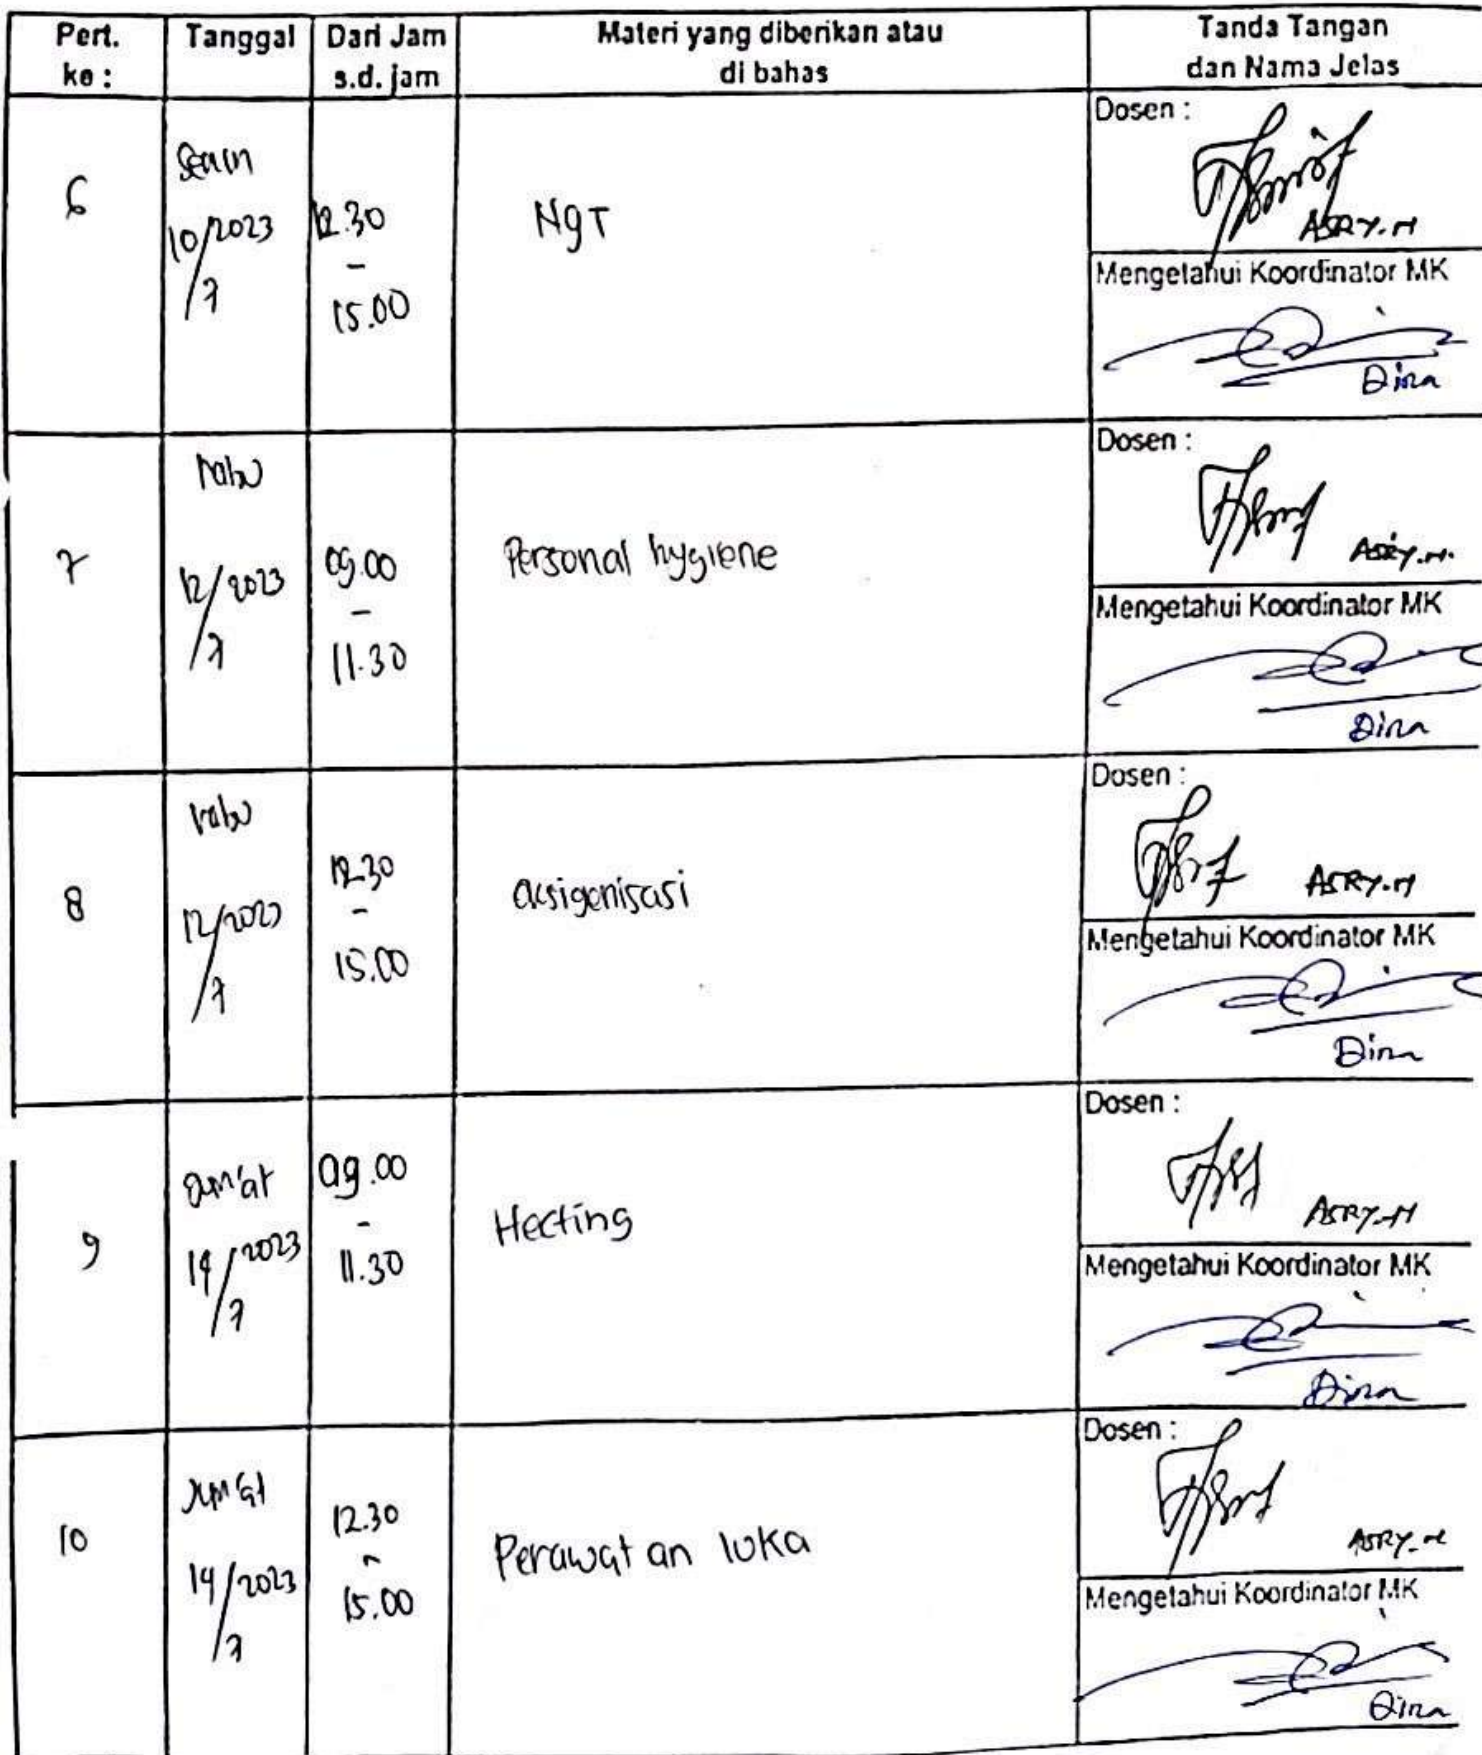 Pert. ke :
Tanggal
Dari Jam s.d. jam
Materi yang diberikan atau di bahas
Tanda Tangan dan Nama Jelas
6
Senin
10/2023
/7
12.30
-
15.00
NGT
Dosen :
ASRY.M
Mengetahui Koordinator MK
Dina
7
rabu
12/2023
/7
09.00
-
11.30
Personal hygiene
Dosen :
ASRY.M.
Mengetahui Koordinator MK
Dina
8
rabu
12/2023
/7
12.30
-
15.00
oksigenisasi
Dosen :
ASRY.M
Mengetahui Koordinator MK
Dina
9
Jum'at
14/2023
/7
09.00
-
11.30
Hecting
Dosen :
ASRY.M
Mengetahui Koordinator MK
Dina
10
Jum'at
14/2023
/7
12.30
-
15.00
Perawatan luka
Dosen :
ASRY.M
Mengetahui Koordinator MK
Dina